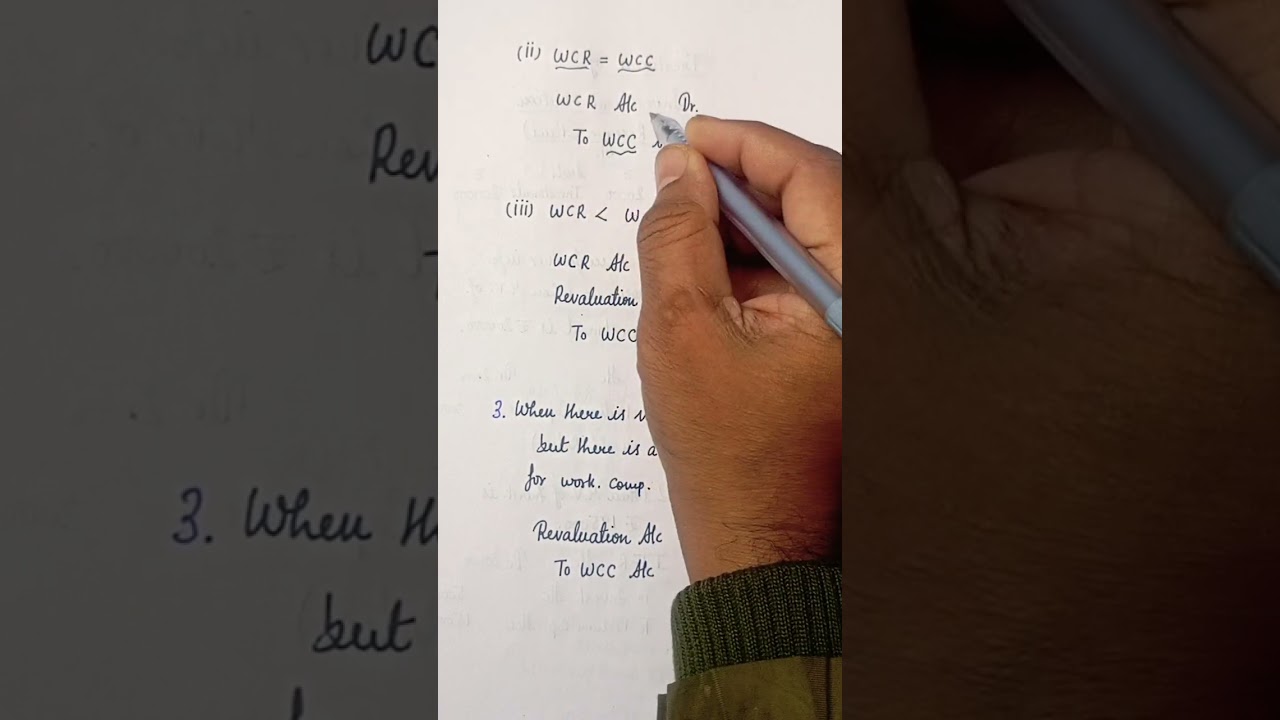 (ii) WCR = WCC
WCR A/c Dr.
To WCC
(iii) WCR <
WCR A/c
Revaluation
To WCC
3. When there is
but there is a
for work. comp.
Revaluation A/c
To WCC A/c